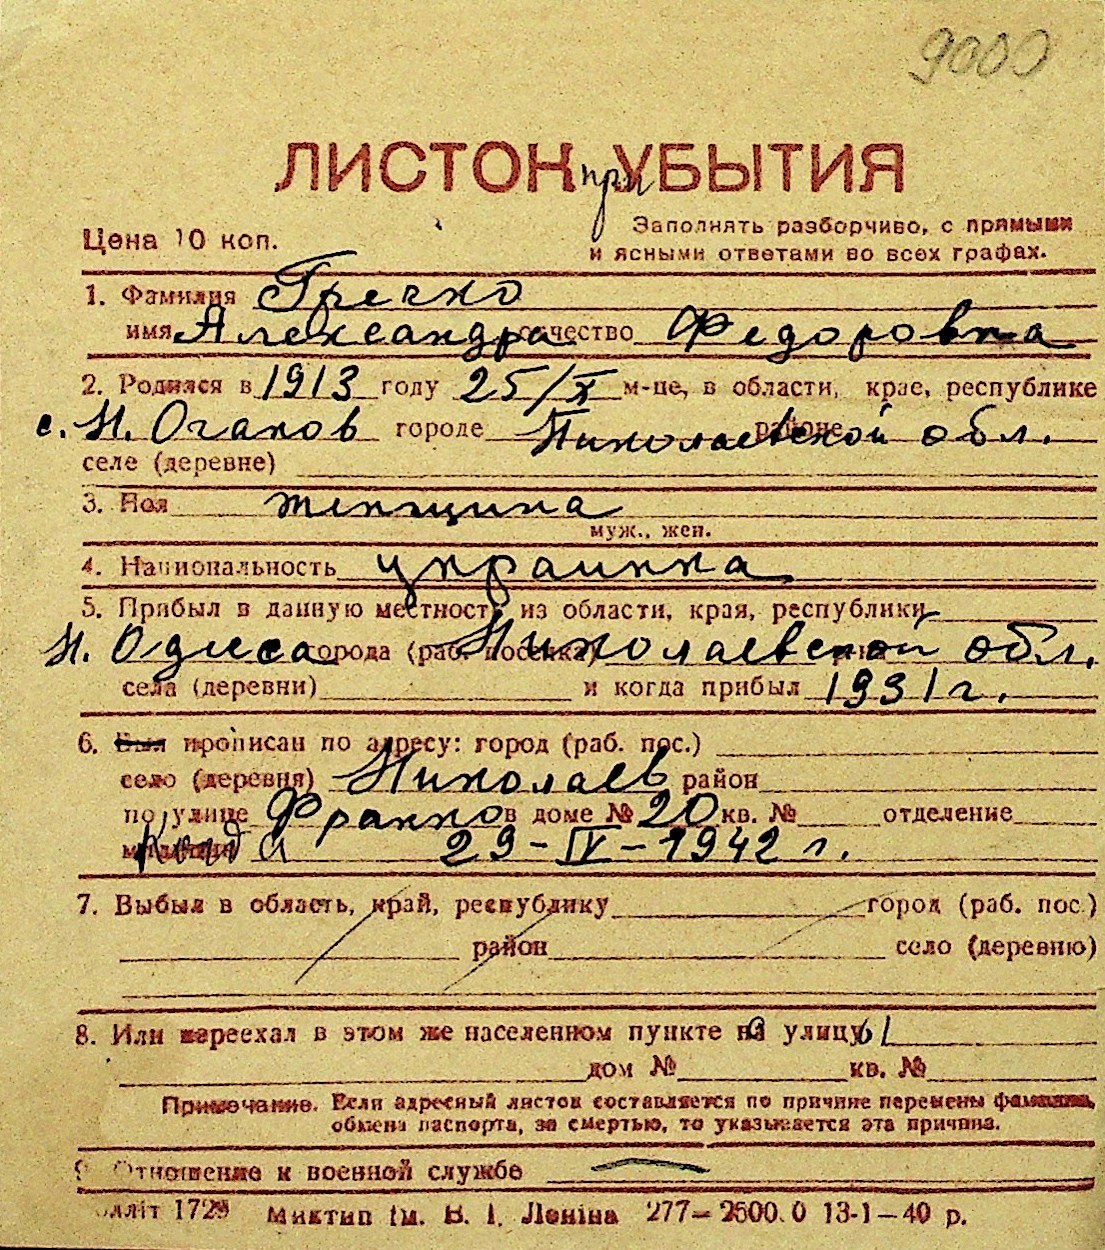 9000
ЛИСТОК при УБЫТИЯ
Цена 10 коп. Заполнять разборчиво, с прямыми
и ясными ответами во всех графах.
1. Фамилия Гречко
имя Александра отчество Федоровна
2. Родился в 1913 году 25/X м-це, в области, крае, республике
с. Н. Очаков городе Николаевской районе обл.
селе (деревне)
3. Пол женщина
муж., жен.
4. Национальность украинка
5. Прибыл в данную местность из области, края, республики
Н. Одесса города (раб. поселка) Николаевской р-на обл.
села (деревни) и когда прибыл 1931 г.
6. Был прописан по адресу: город (раб. пос.)
село (деревня) Николаев район
по улице Франко в доме № 20 кв. № отделение
милиции Когда 29-IV-1942 г.
7. Выбыл в область, край, республику город (раб. пос.)
район село (деревню)
8. Или переехал в этом же населенном пункте на улицу
дом № кв. №
Примечание. Если адресный листок составляется по причине перемены фамилии,
обмена паспорта, за смертью, то указывается эта причина.
9. Отношение к военной службе
Миктип ім. В. І. Леніна 277—2500.0 13-1—40 р.